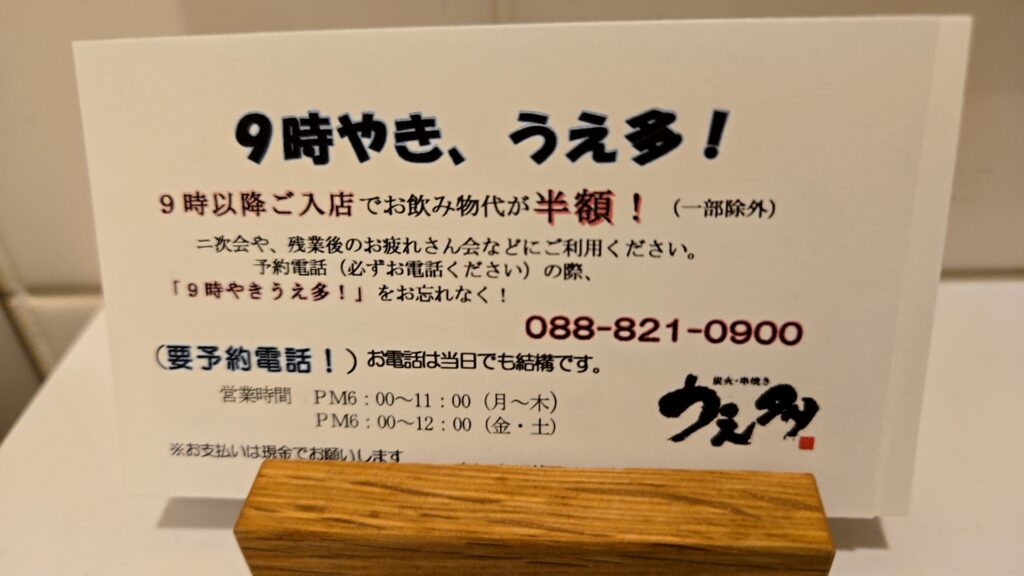 9時やき、うえ多！
９時以降ご入店でお飲み物代が半額！（一部除外）
二次会や、残業後のお疲れさん会などにご利用ください。
予約電話（必ずお電話ください）の際、
「９時やきうえ多！」をお忘れなく！
088-821-0900
（要予約電話！）お電話は当日でも結構です。
営業時間　ＰＭ6：00〜11：00（月〜木）
ＰＭ6：00〜12：00（金・土）
炭火・串焼き
うえ多
※お支払いは現金でお願いします